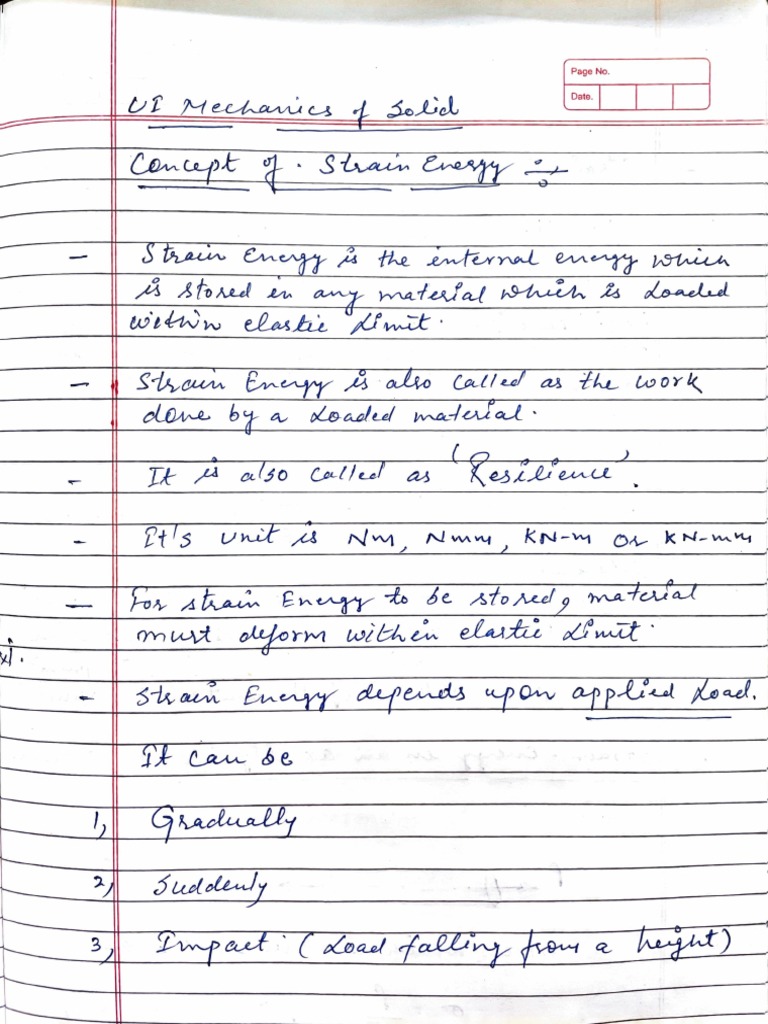 Page No.
Date.
UI Mechanics of Solid
Concept of . Strain Energy ÷
- Strain Energy is the internal energy which
is stored in any material which is Loaded
within elastic Limit.
- Strain Energy is also called as the work
done by a Loaded material.
- It is also called as 'Resilience'.
- It's unit is Nm, Nmm, KN-m or KN-mm
- For strain Energy to be stored, material
must deform within elastic Limit.
- Strain Energy depends upon applied Load.
It can be
1, Gradually
2, Suddenly
3, Impact. (Load falling from a height)